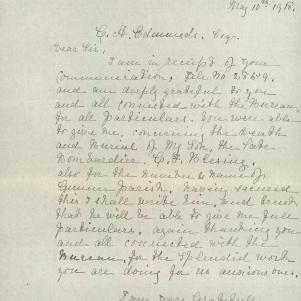 May 10th 1918.
C. A. Edmunds. Esqr.
Dear Sir,
I am in receipt of your
communication, File No 2869.
and am deeply grateful to you
and all connected with the Bureau,
for all particulars. You were able
to give me, concerning the Death
and Burial of My Son, the late
Bombardier. C. F. Blesing.
also for the number & name of
Gunner Parish. having secured
this I shall write him, and trust
that he will be able to give me full
particulars. again thanking you
and all connected with the
Bureau, for the splendid work
you are doing for us anxious ones.
I am Dear